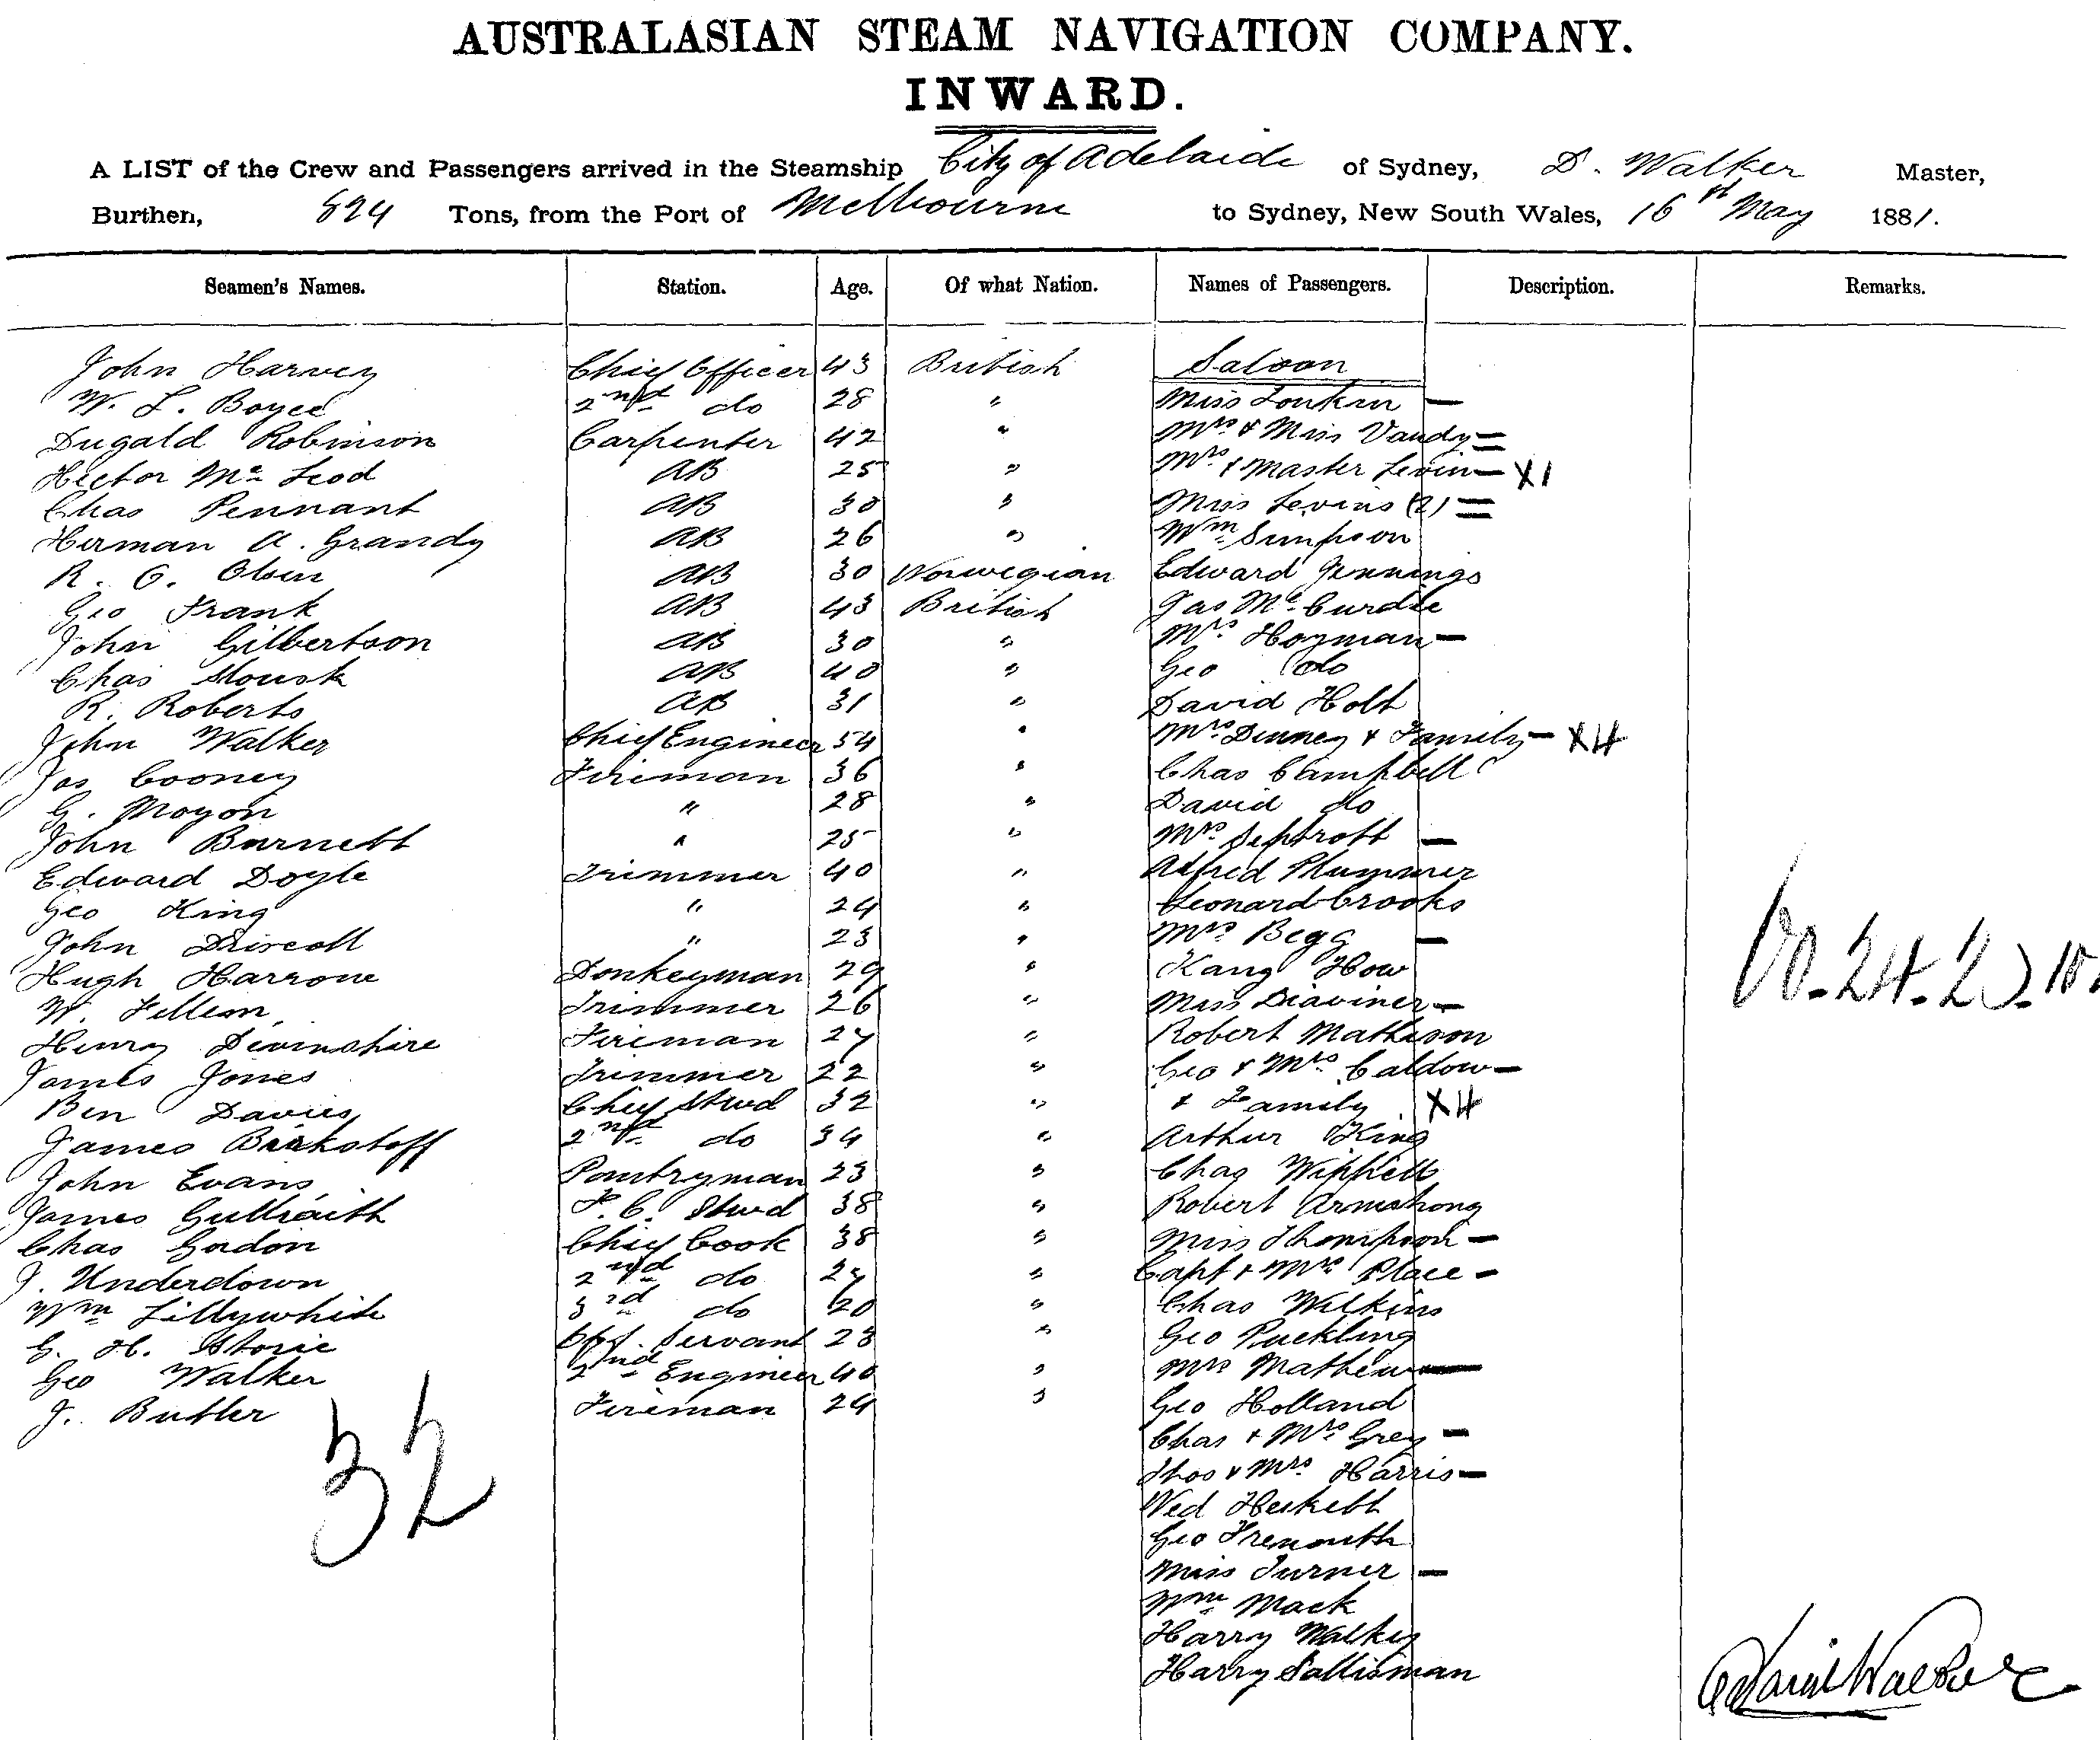 AUSTRALASIAN STEAM NAVIGATION COMPANY.
INWARD.
A LIST of the Crew and Passengers arrived in the Steamship City of Adelaide of Sydney, D. Walker Master,
Burthen, 824 Tons, from the Port of Melbourne to Sydney, New South Wales, 16th May 1881.
Seamen's Names. Station. Age. Of what Nation. Names of Passengers. Description. Remarks.
John Harvey Chief Officer 43 British Saloon
W. L. Boyce 2nd do 28 " Miss Tonkin —
Dugald Robinson Carpenter 42 " Mrs & Miss Vandy =
Hector Mc Leod AB 25 " Mrs & Master Levin — X1
Chas Pennant AB 30 " Miss Levins (2) =
Herman A. Grandy AB 26 " Wm Simpson
R. O. Olsen AB 30 Norwegian Edward Jennings
Geo Frank AB 43 British Jas Mc Curdie
John Gilbertson AB 30 " Mrs Hoyman —
Chas AB 40 " Geo do
R. Roberts AB 31 " David Holt
John Walker Chief Engineer 54 " Mrs Denney & Family — X4
Jas Cooney Fireman 36 " Chas Campbell
G. Moyon " 28 " David do
John Barnett " 25 " Mrs —
Edward Doyle Trimmer 40 " Alfred Plummer
Geo King " 24 " Leonard Crooks
John Driscoll " 23 " Mrs Begg —
Hugh Harrone Donkeyman 29 " Kang How
W. Trimmer 26 " Miss —
Henry Devinshire Fireman 27 " Robert Matheson
James Jones Trimmer 22 " Geo & Mrs Caldow —
Ben Davies Chief Stwd 32 " & Family X4
James Birkstoff 2nd do 34 " Arthur King
John Evans Pantryman 23 " Chas Wippell
James Gulbraith F. C. Stwd 38 " Robert Armstrong
Chas Gordon Chief Cook 38 " Miss Thompson —
J. Underdown 2nd do 27 " Capt & Mrs Place —
Wm Lillywhite 3rd do 20 " Chas Wilkins
G. H. Storie Off. Servant 23 " Geo Puckling
Geo Walker 2nd Engineer 40 " Mrs Mathew —
J. Butler Fireman 24 " Geo Holland
Chas & Mrs Grey —
Thos & Mrs Harris —
Ned Heskett
Geo Tremouth
Miss Turner —
Wm Mack
Harry Walker
Harry Sallisman
32
24.
David Walker